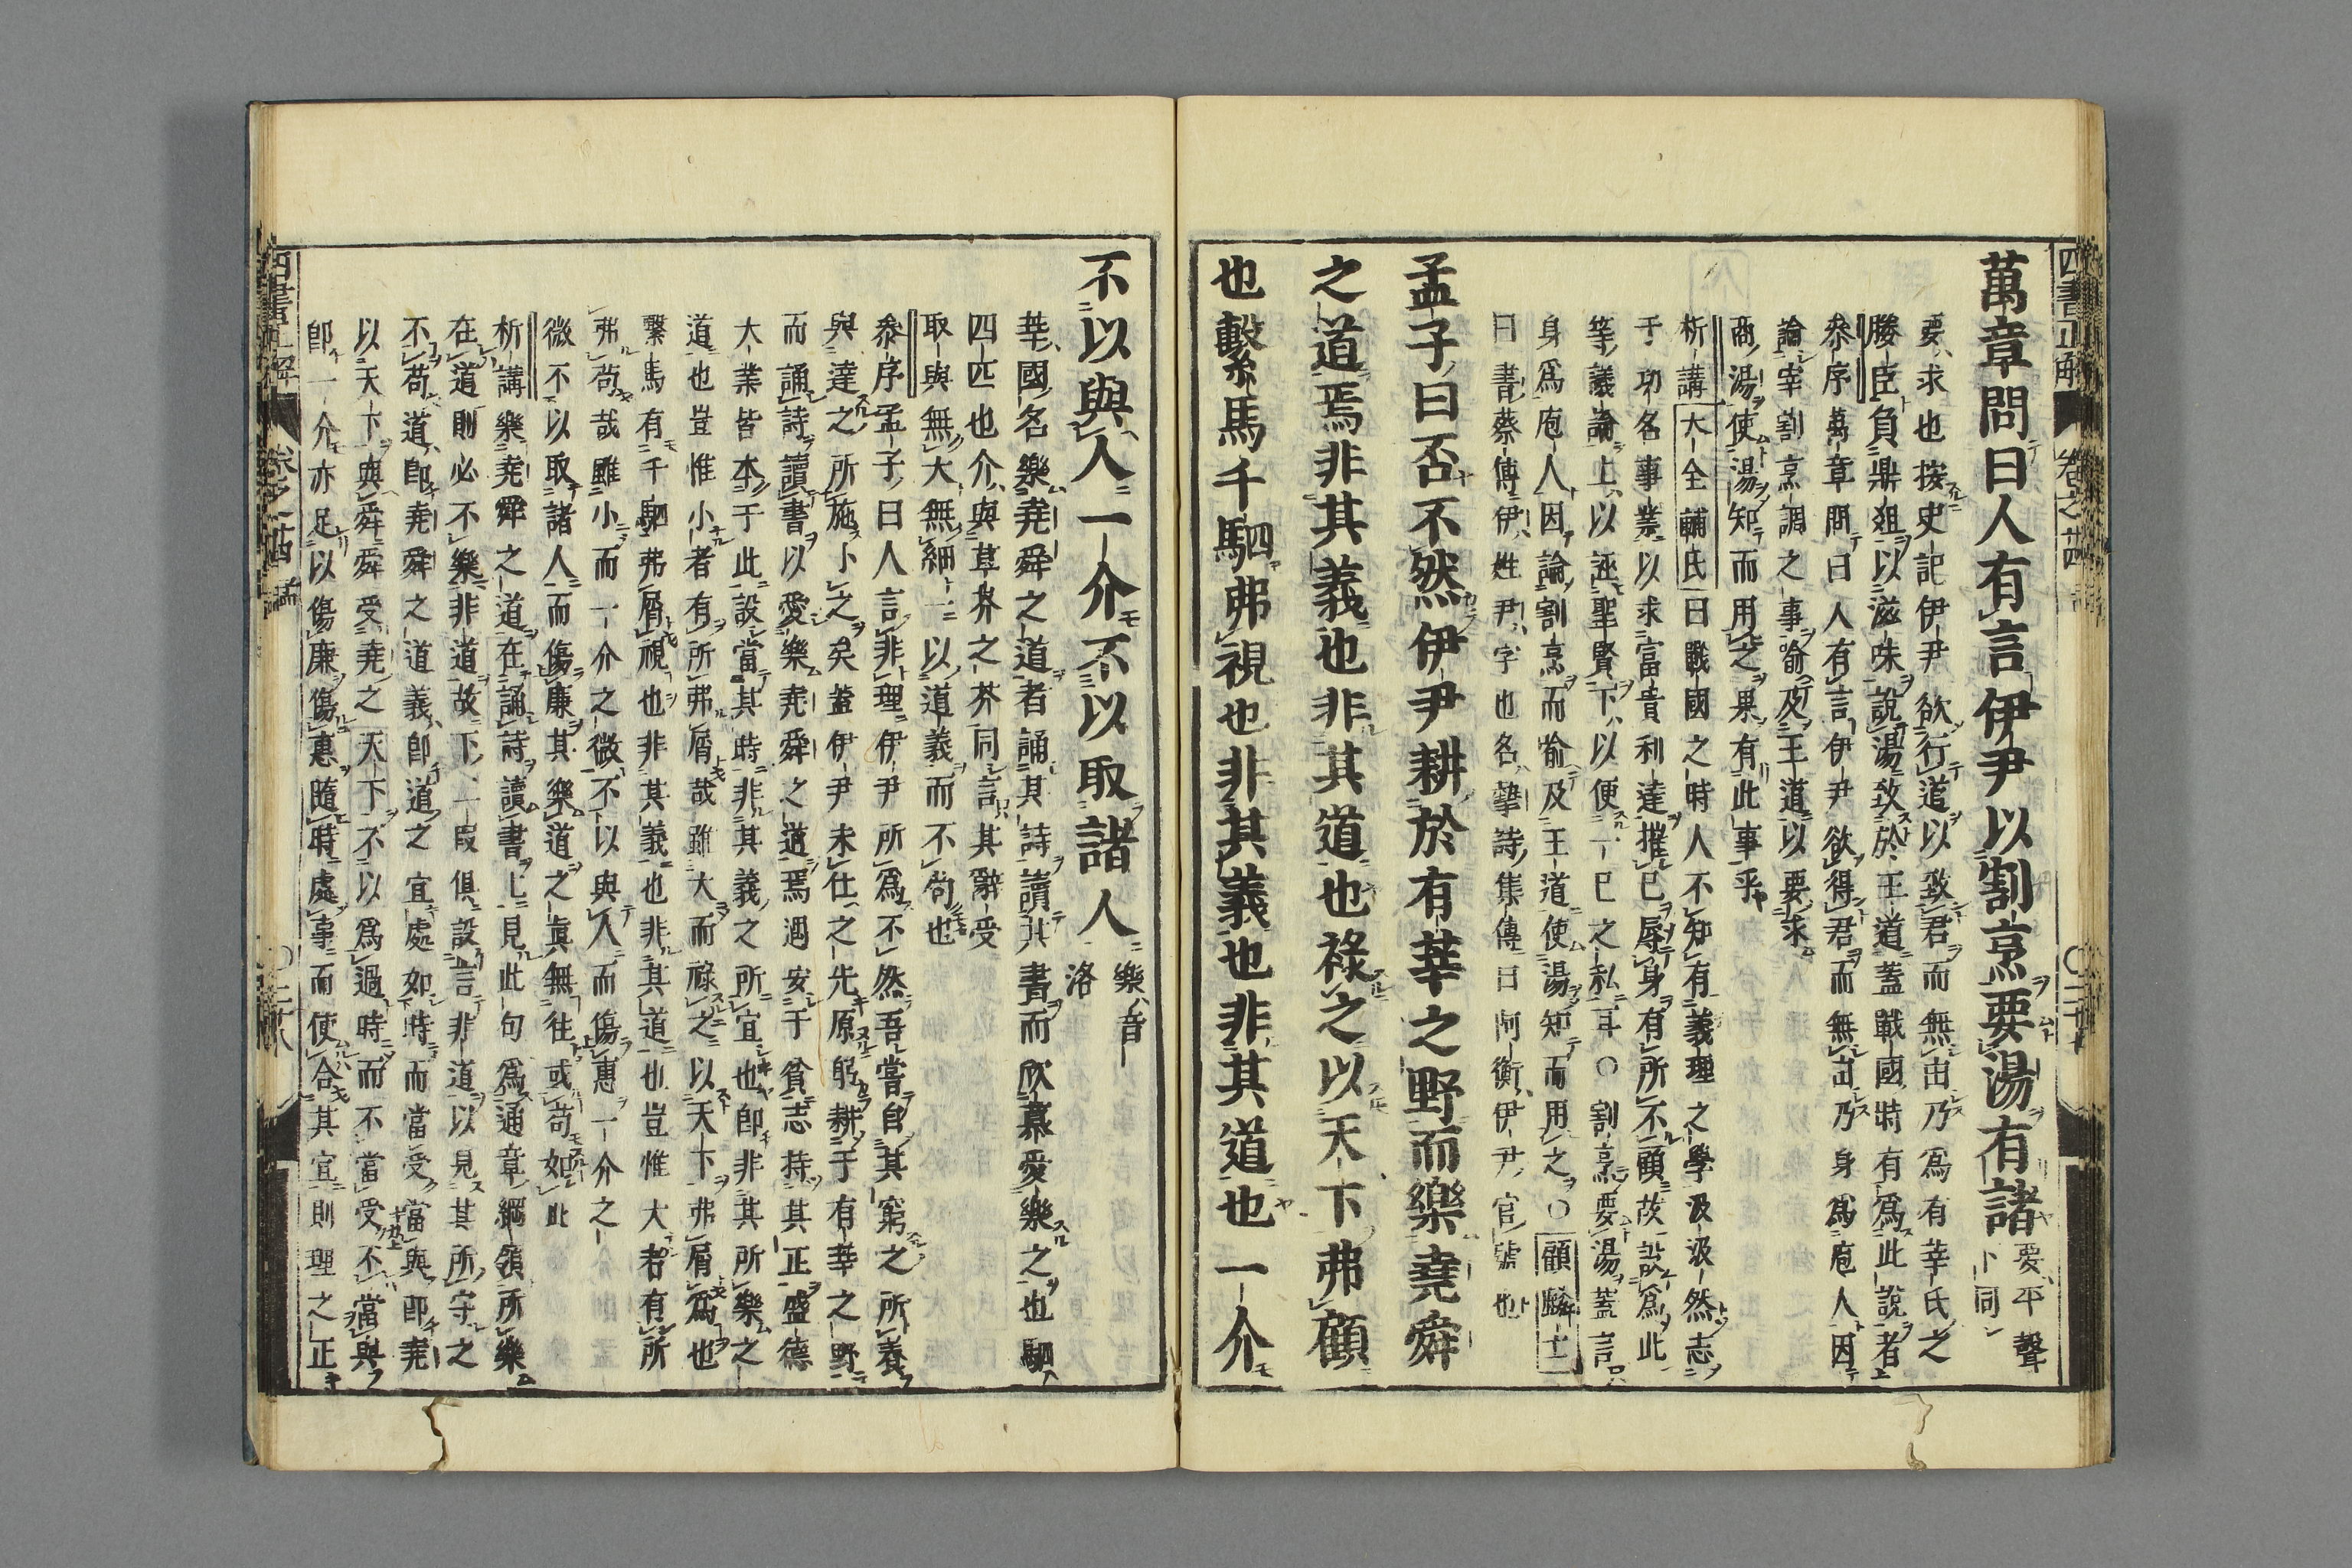 四書正解 卷之廿四
萬章問曰人有言伊尹以割烹要湯有諸 要平聲下同
要求也按史記伊尹欲行道以致君而無由乃爲有莘氏之
媵臣負鼎爼以滋味說湯致於王道蓋戰國時有爲此說者
叅序萬章問曰人有言伊尹欲得君而無由乃身爲庖人因
論宰割烹調之事喻及王道以要求
商湯使湯知而用之果有此事乎
析講大全輔氏曰戰國之時人不知有義理之學汲汲然志
于功名事業以求富貴利達摧巳辱身有所不顧故設爲此
等議論上以誣聖賢下以便一巳之私耳○割烹要湯蓋言
身爲庖人因論割烹而喻及王道使湯知而用之○顧麟士
曰書蔡傳伊姓尹字也名摯詩集傳曰阿衡伊尹官號也
孟子曰否不然伊尹耕於有莘之野而樂堯舜
之道焉非其義也非其道也祿之以天下弗顧
也繫馬千駟弗視也非其義也非其道也一介
不以與人一介不以取諸人 樂音洛
莘國名樂堯舜之道者誦其詩讀其書而欣慕愛樂之也駟
四匹也介與草芥之芥同言其辭受
取與無大無細一以道義而不苟也
叅序孟子曰人言非理伊尹所爲不然吾嘗自其窮之所養
與達之所施卜之矣蓋伊尹未仕之先原躬耕于有莘之野
而誦詩讀書以愛樂堯舜之道焉遇安于貧志持其正盛德
大業皆本于此設當其時非其義之所宜也卽非其所樂之
道也豈惟小者有所弗屑哉雖大而祿之以天下弗屑爲也
繫馬有千駟弗屑視也非其義也非其道也豈惟大者有所
弗苟哉雖小而一介之微不以與人而傷惠一介之
微不以取諸人而傷廉其樂道之眞無徃或苟如此
析講樂堯舜之道在誦詩讀書上見此句爲通章綱領所樂
在道則必不樂非道故下一叚俱設言非道以見其所守之
不苟道卽堯舜之道義卽道之宜處如時而當受當與卽堯
以天下與舜舜受堯之天下不以爲過時而不當受不當與
卽一介亦足以傷廉傷惠隨時處事而使合其宜則理之正